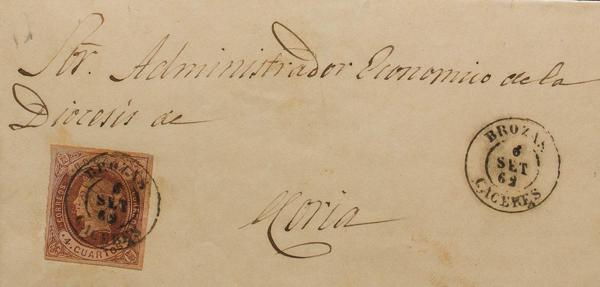 Sor. Administrador Economico de la
Diocesis de
Coria
BROZAS
6
SET
62
CACERES
BROZAS
6
SET
62
CACERES
CORREOS
4 CUARTOS